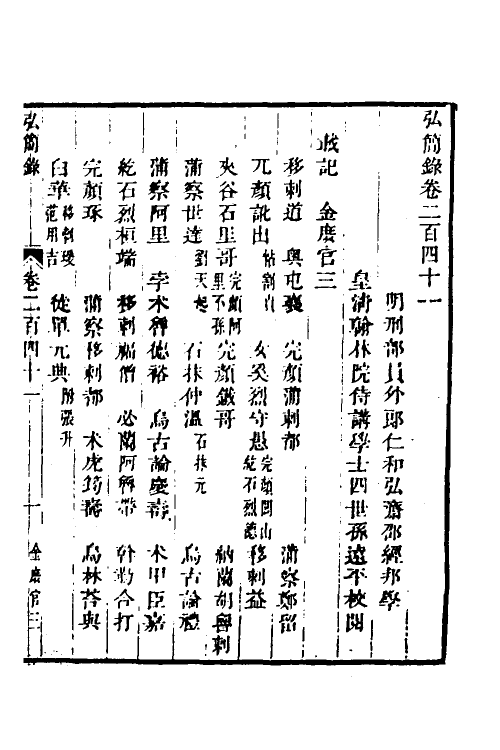 弘簡錄卷二百四十一
明刑部員外郎仁和弘齋邵經邦學
皇清翰林院侍講學士四世孫遠平校閱
載記 金庶官三
移剌道 與屯襄 完顏蒲剌都 蒲察鄭留
兀顏訛出 粘割貞 女奚烈守愚 完顏閭山 紇石烈德 移剌益
夾谷石里哥 完顏阿里不孫 完顏鐵哥 納蘭胡魯剌
蒲察世達 劉天起 石抹仲溫 石抹元 烏古論禮
蒲察阿里 孛木魯德裕 烏古論慶壽 木甲臣嘉
紇石烈桓端 移剌福僧 必蘭阿魯帶 斡勒合打
完顏琢 蒲察移剌都 木虎筠壽 烏林荅與
白華 移剌瑗 范用吉 徒單兀典 附張升
弘簡錄 卷二百四十一 一 金庶官三